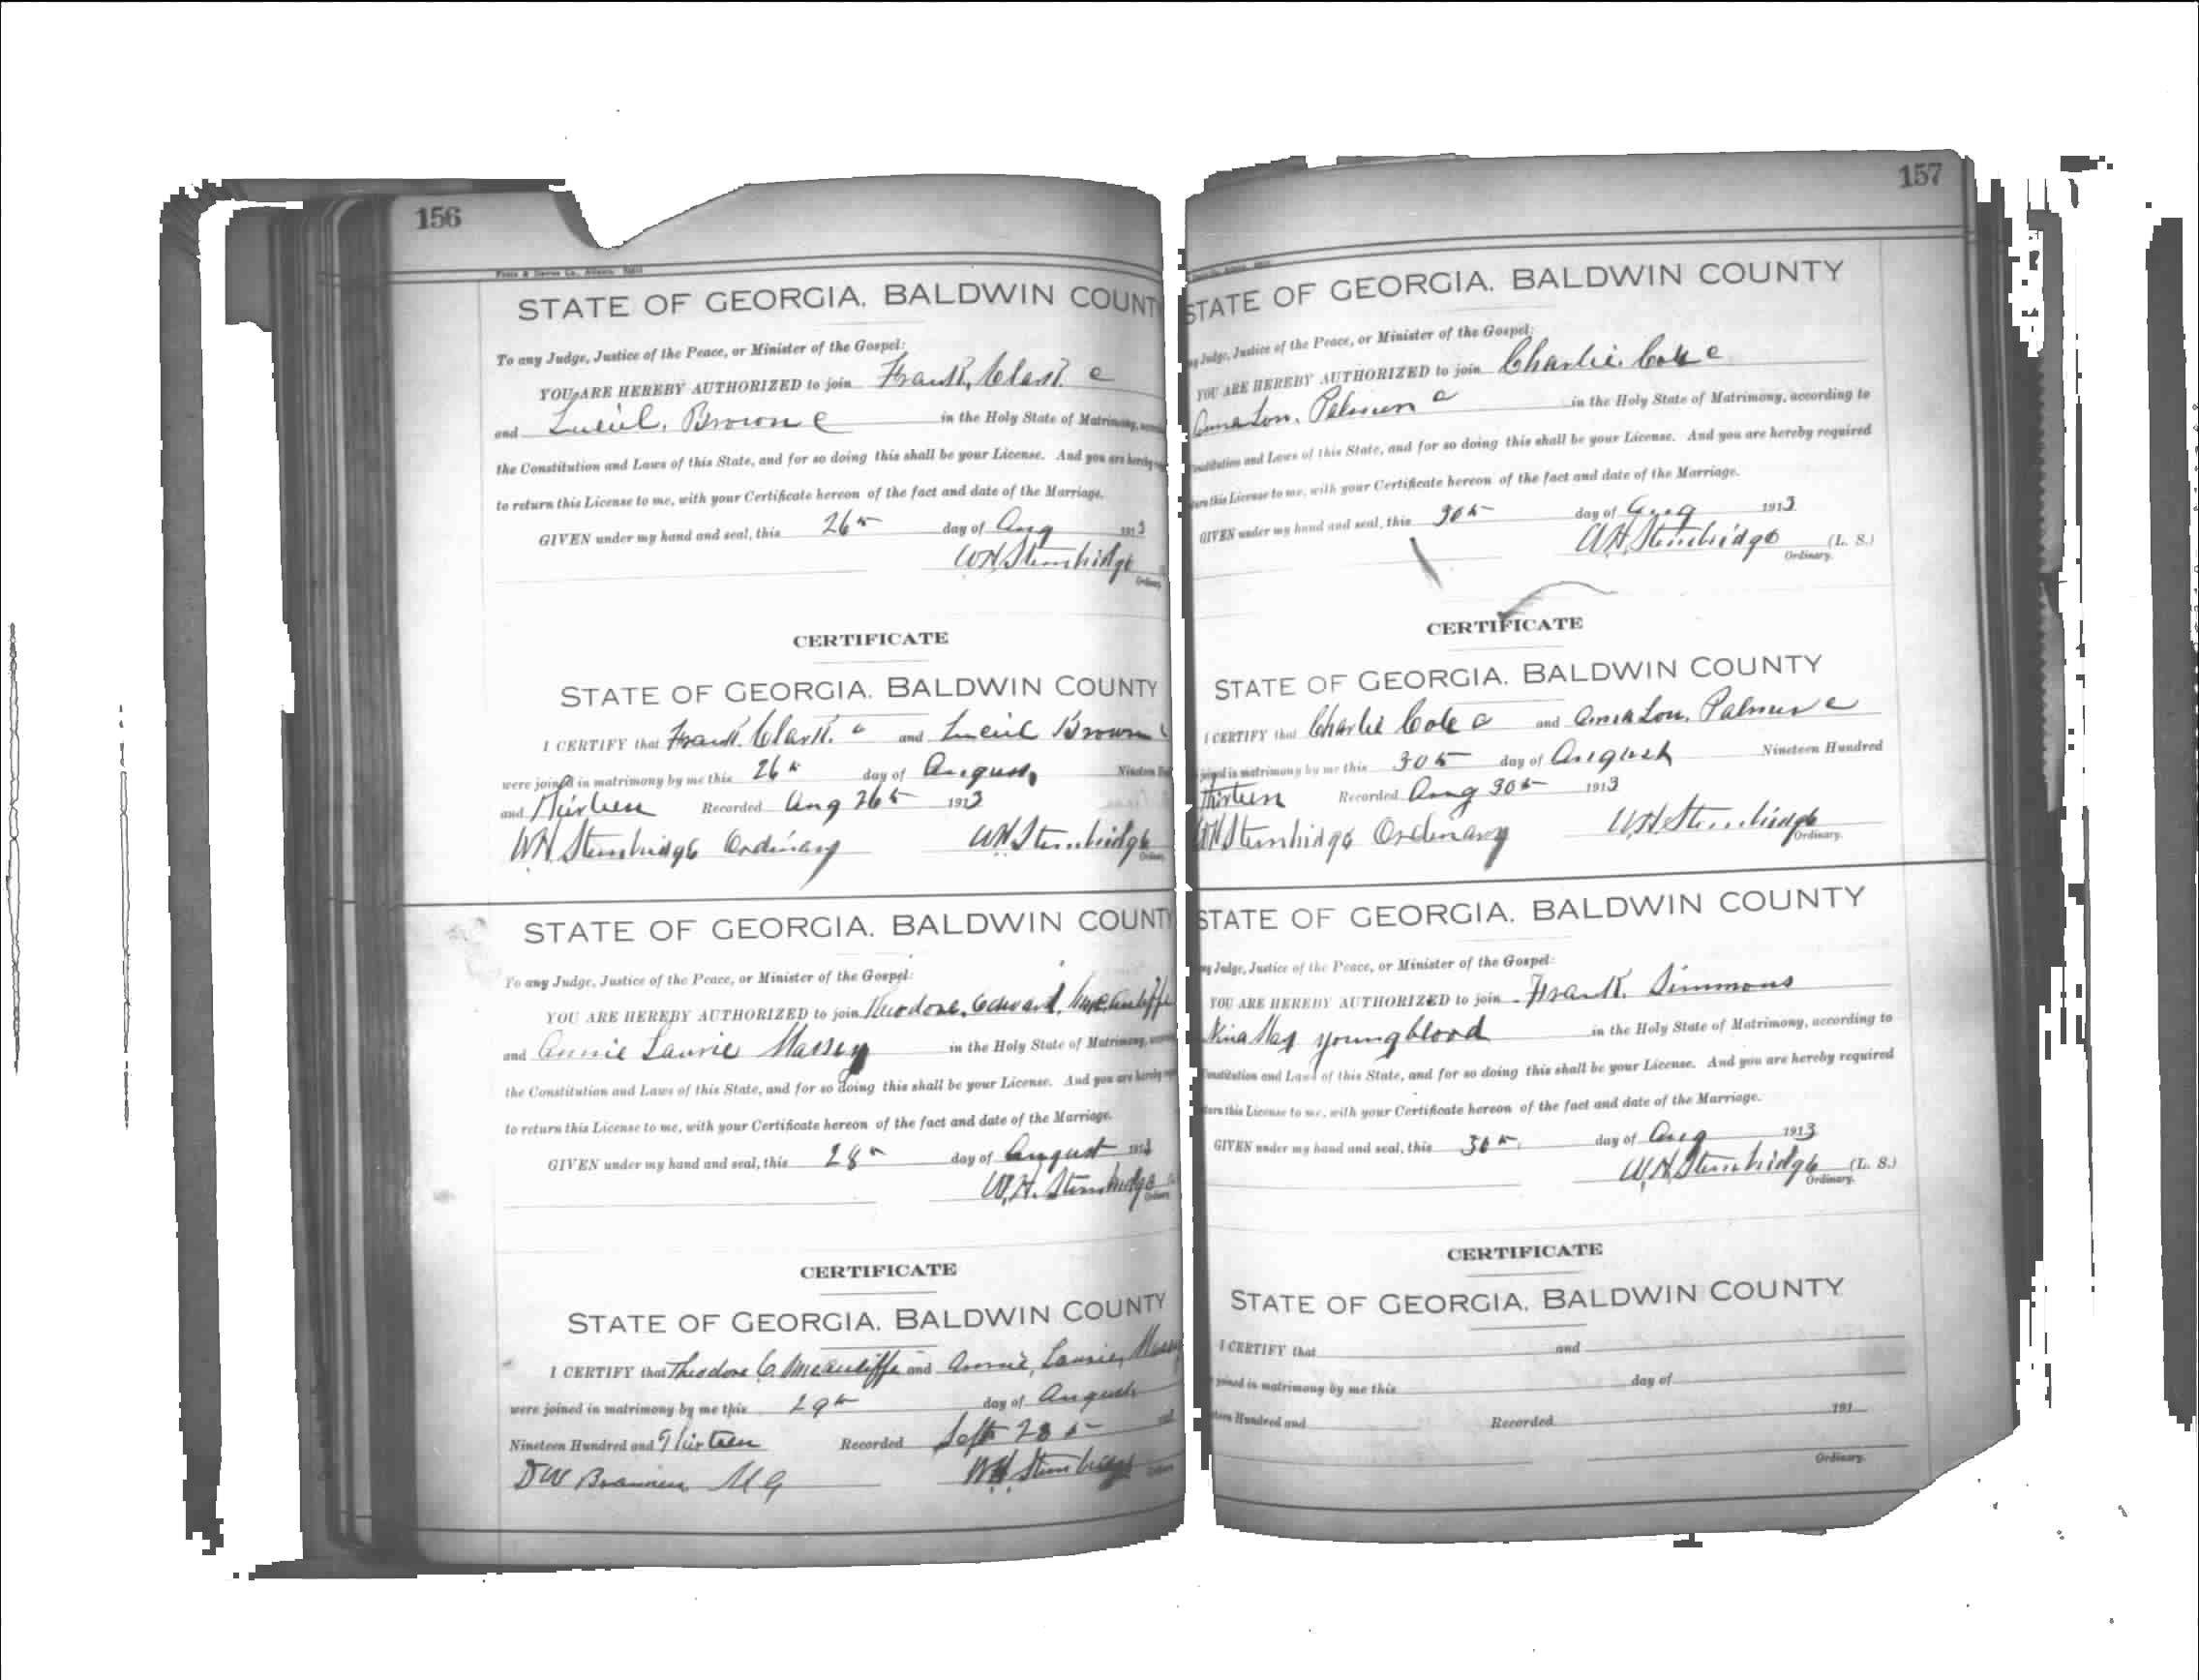 156
STATE OF GEORGIA, BALDWIN COUNT
To any Judge, Justice of the Peace, or Minister of the Gospel:
YOU ARE HEREBY AUTHORIZED to join Frank Clark c
and Lucil. Brown c in the Holy State of Matrimony,
the Constitution and Laws of this State, and for so doing this shall be your License. And you are hereby
to return this License to me, with your Certificate hereon of the fact and date of the Marriage.
GIVEN under my hand and seal, this 26th day of Aug 1913
W H Stembridge
Ordinary
CERTIFICATE
STATE OF GEORGIA. BALDWIN COUNTY
I CERTIFY that Frank Clark. c and Lucil Brown c
were joined in matrimony by me this 26th day of August, Nineteen
and Thirteen Recorded Aug 26th 1913
W H Stembridge Ordinary W H Stembridge
Ordinary
STATE OF GEORGIA. BALDWIN COUNTY
To any Judge, Justice of the Peace, or Minister of the Gospel:
YOU ARE HEREBY AUTHORIZED to join Theodore. Edward. McCauliffe
and Annie Laurie Massey in the Holy State of Matrimony,
the Constitution and Laws of this State, and for so doing this shall be your License. And you are hereby
to return this License to me, with your Certificate hereon of the fact and date of the Marriage.
GIVEN under my hand and seal, this 28th day of August 1913
W, H. Stembridge
Ordinary
CERTIFICATE
STATE OF GEORGIA. BALDWIN COUNTY
I CERTIFY that Theodore E. McCauliffe and Annie, Laurie, Massey
were joined in matrimony by me this 29th day of August
Nineteen Hundred and Thirteen Recorded Sept 28th
D W Brannen M G W H Stembridge
157
STATE OF GEORGIA. BALDWIN COUNTY
Judge, Justice of the Peace, or Minister of the Gospel:
YOU ARE HEREBY AUTHORIZED to join Charlie. Cole c
Anna Lou. Palmer c in the Holy State of Matrimony, according to
Constitution and Laws of this State, and for so doing this shall be your License. And you are hereby required
this License to me, with your Certificate hereon of the fact and date of the Marriage.
GIVEN under my hand and seal, this 30th day of Aug 1913
W H Stembridge (L. S.)
Ordinary.
CERTIFICATE
STATE OF GEORGIA. BALDWIN COUNTY
I CERTIFY that Charlie Cole c and Anna Lou. Palmer c
joined in matrimony by me this 30th day of August Nineteen Hundred
Thirteen Recorded Aug 30th 1913
W H Stembridge Ordinary W H Stembridge
Ordinary.
STATE OF GEORGIA. BALDWIN COUNTY
Judge, Justice of the Peace, or Minister of the Gospel:
YOU ARE HEREBY AUTHORIZED to join Frank. Simmons
Nina May youngblood in the Holy State of Matrimony, according to
Constitution and Laws of this State, and for so doing this shall be your License. And you are hereby required
this License to me, with your Certificate hereon of the fact and date of the Marriage.
GIVEN under my hand and seal, this 30th. day of Aug 1913
W, H. Stembridge (L. S.)
Ordinary.
CERTIFICATE
STATE OF GEORGIA. BALDWIN COUNTY
I CERTIFY that and
joined in matrimony by me this day of
Hundred and Recorded 191
Ordinary.